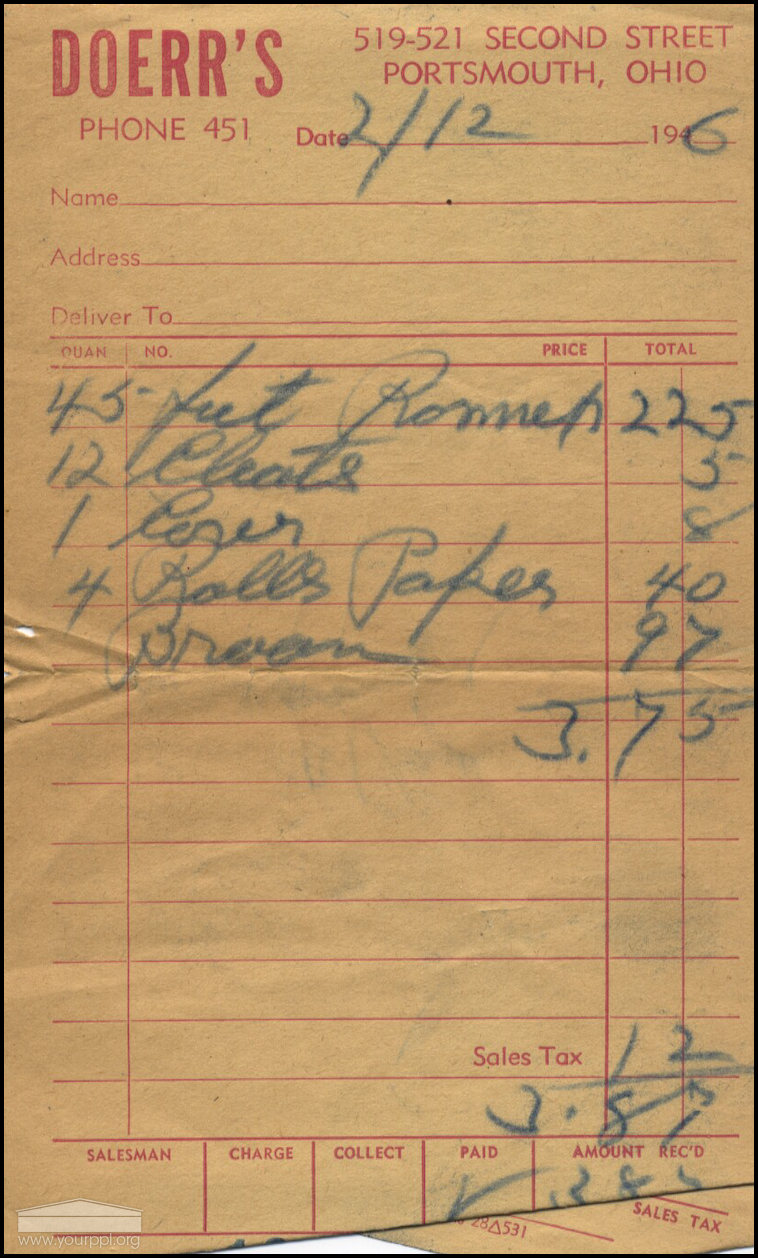 DOERR'S
519-521 SECOND STREET
PORTSMOUTH, OHIO
PHONE 451 Date 2/12 1946
Name
Address
Deliver To
QUAN NO. PRICE TOTAL
45 Feet 225
12 Cleats 5
1 8
4 Rolls Paper 40
Broom 97
3.75
Sales Tax 12
3.87
SALESMAN CHARGE COLLECT PAID AMOUNT REC'D
28△531 SALES TAX
www.yourppl.org